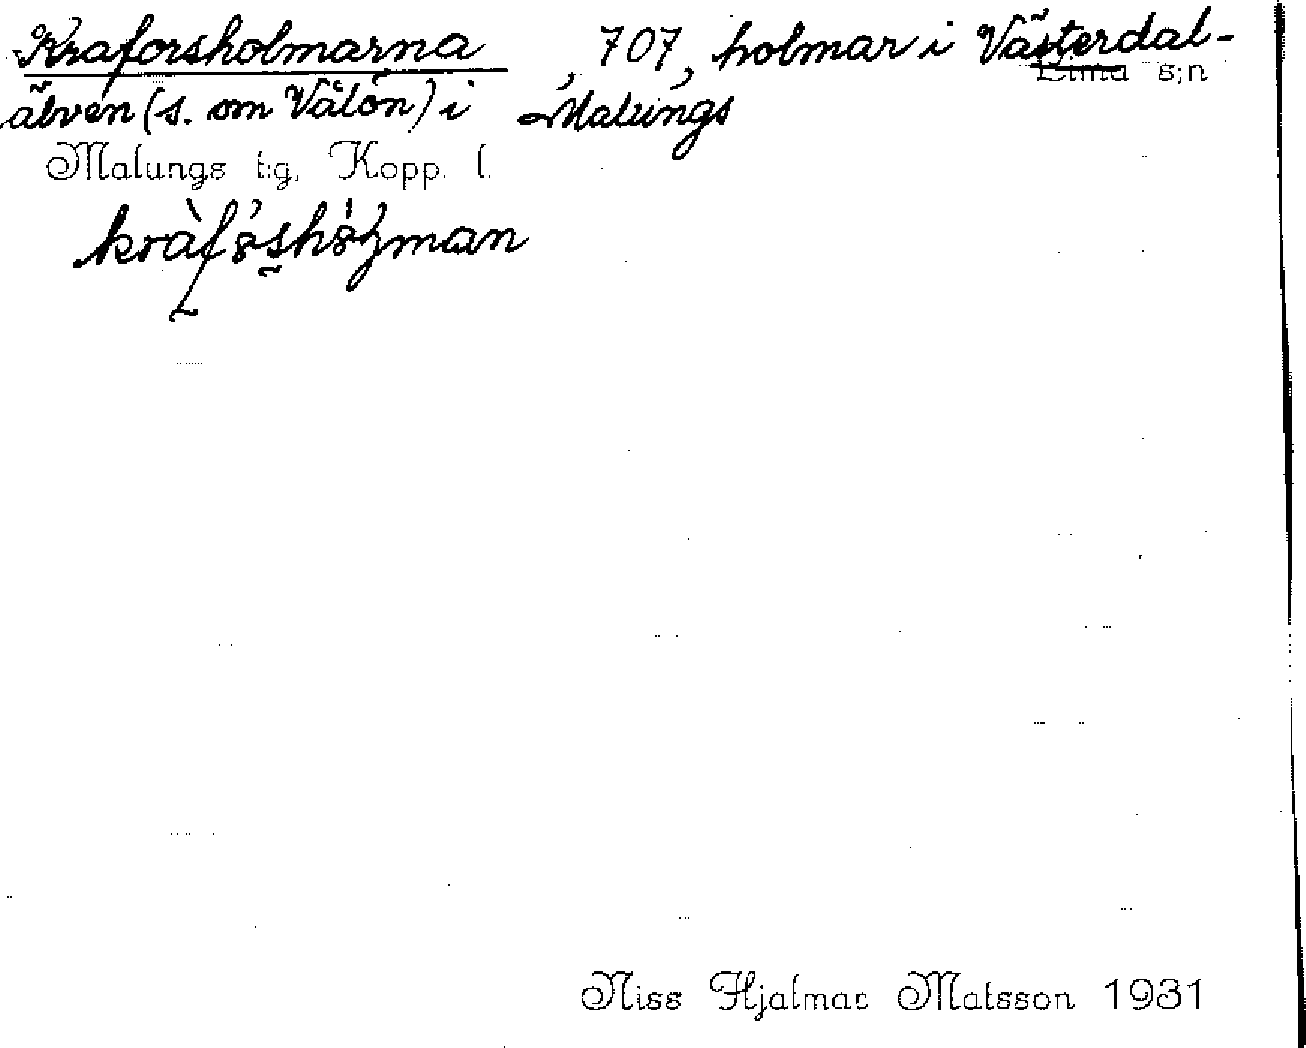 Kraforsholmarna, 707, holmar i Västerdal-
Lima s:n
älven (s. om Välön) i Malungs
Malungs t:g, Kopp. l.
Niss Hjalmar Matsson 1931